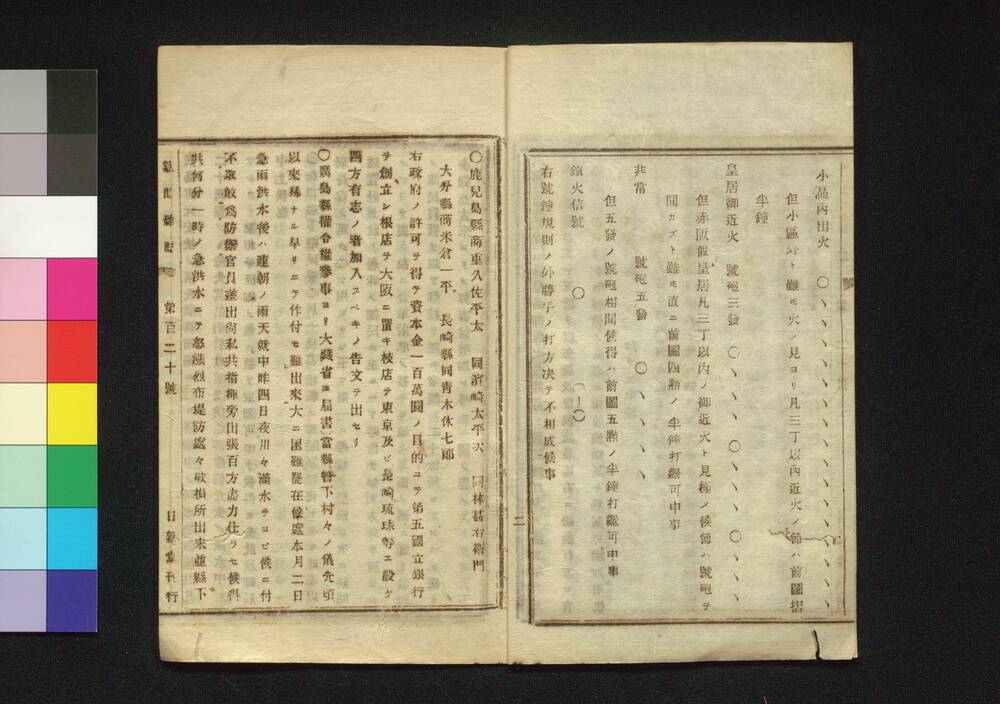 小區內出火 〇ヽヽヽヽヽヽヽヽヽヽ
但小區外ト雖モ火ノ見ヨリ凡三丁以內近火ノ節ハ前圖摺
半鐘
皇居御近火 號砲三發 〇ヽヽヽ 〇ヽヽヽ 〇ヽヽヽ
但赤阪假皇居凡三丁以內ノ御近火ト見極ノ候節ハ號砲ヲ
聞カズト雖モ直ニ前圖四點ノ半鐘打繼可申事
非常 號砲五發 〇ヽヽヽヽ
但五發ノ號砲相聞候得ハ前圖五點ノ半鐘打繼可申事
鎮火信號 〇 〇ー〇
右號鐘規則ノ外勝手ノ打方決テ不相成候事
二
〇鹿兒島縣商重久佐平太 同濵崎太平次 同林甚右衞門
大分縣商米倉一平 長崎縣同靑木休七郎
右政府ノ許可ヲ得テ資本金一百萬圓ノ目的ニテ第五國立銀行
ヲ創立シ根店ヲ大阪ニ置キ枝店ヲ東京及ビ長崎琉球等エ設ケ
四方有志ノ者加入スベキノ告文ヲ出セリ
〇廣島縣權令權參事ヨリ大藏省エ屆書當縣管下村々ノ儀先頃
以來稀ナル旱リニテ作付モ難出來大ニ困難罷在候處本月二日
急雨洪水後ハ連朝ノ雨天就中昨四日夜川々滿水ヲヨビ候ニ付
不取敢爲防禦官員差出尙私共指揮旁出張百方盡力仕リセ候得
共何分一時ノ急洪水ニテ怒漲烈布堤防處々破損所出來並縣下
新聞雜誌 第百二十號 日新堂刊行